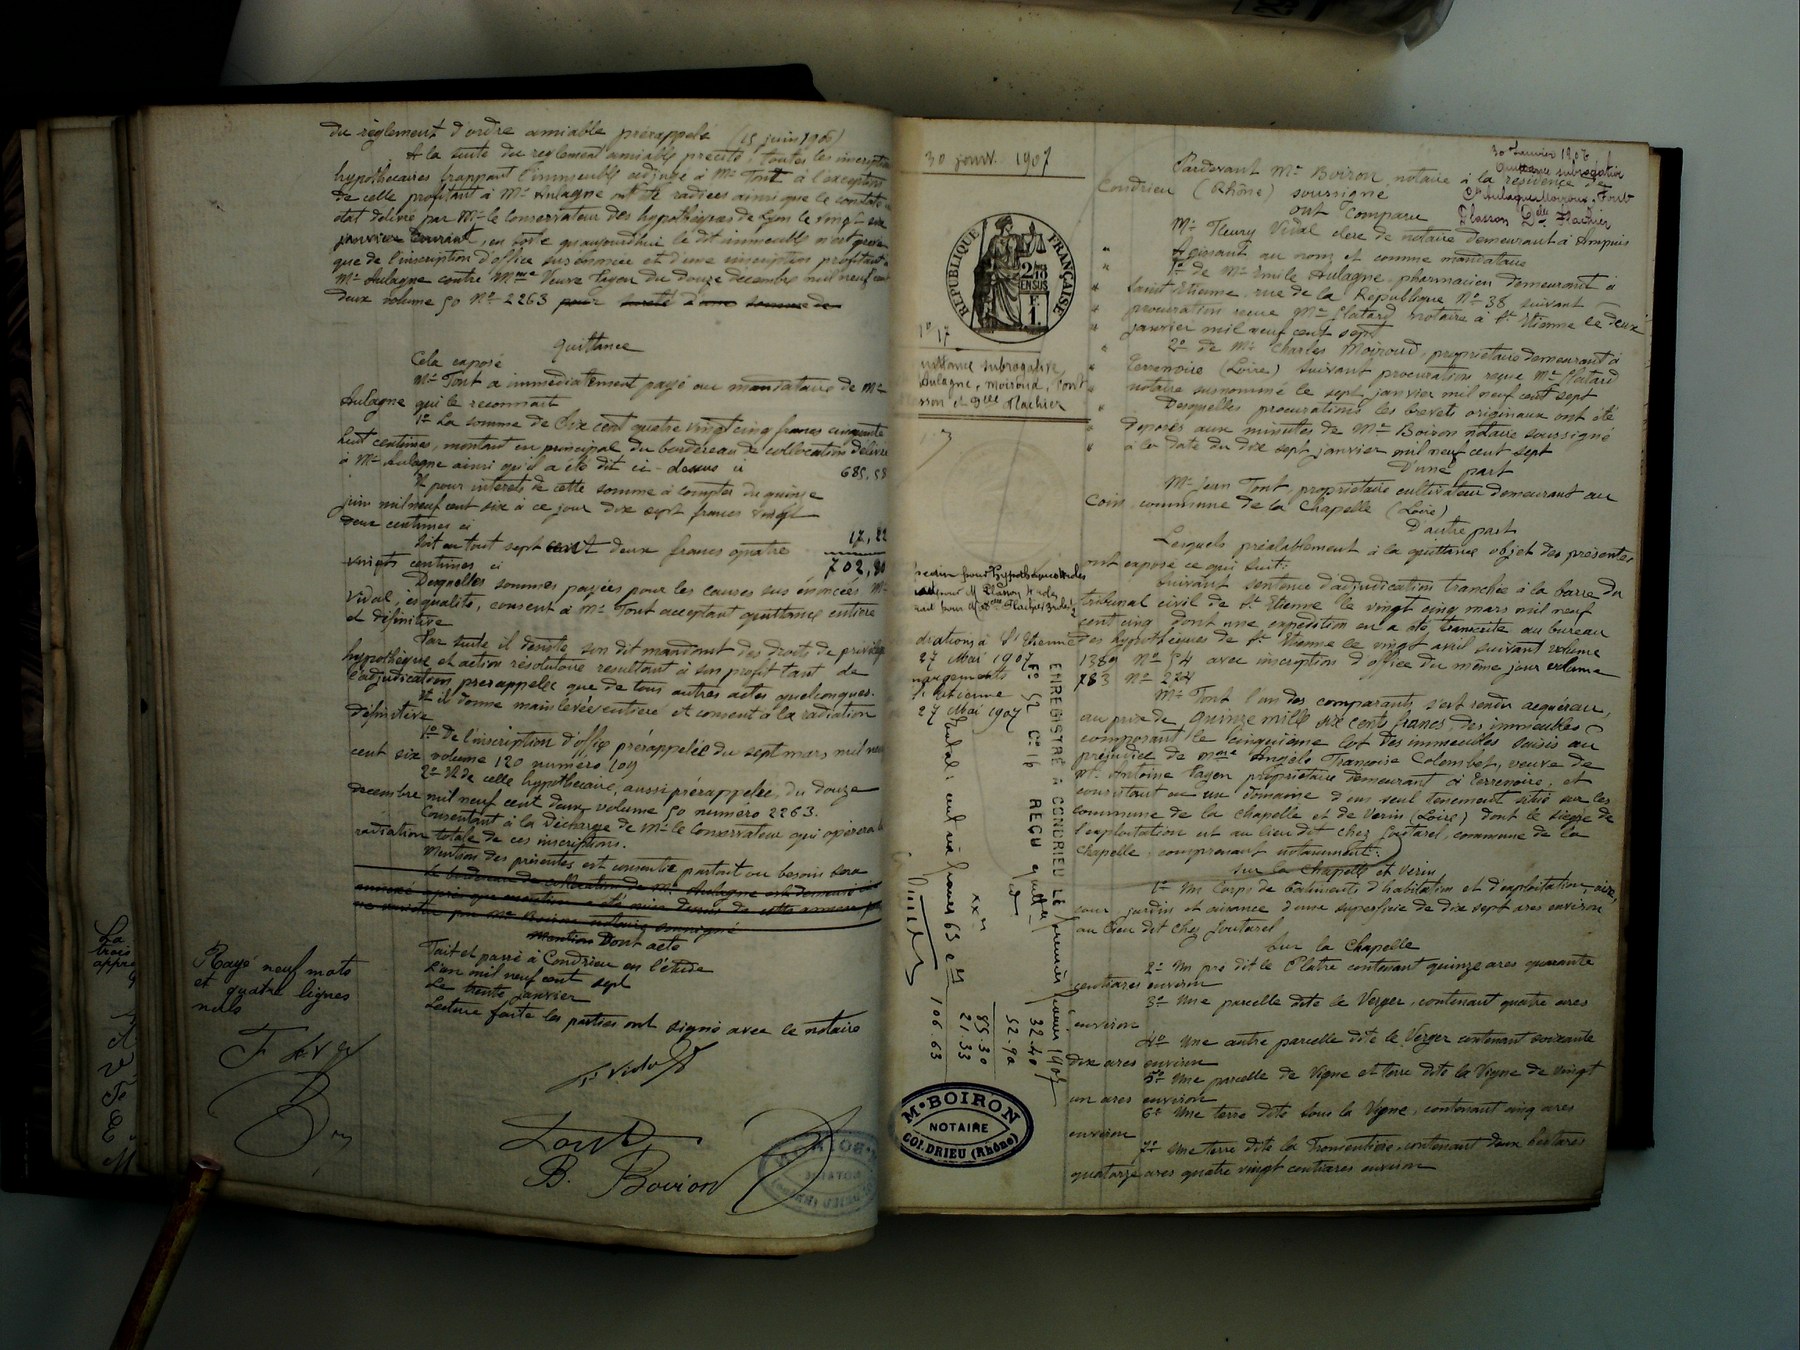 du règlement d'ordre amiable prérappelé (15 juin 1906)
A la suite du règlement amiable précité, toutes les inscriptions
hypothécaires frappant l'immeuble adjugé à Mr Tont à l'exception
de celle profitant à Mr Aulagne ont été radiées ainsi que le constate un
état délivré par Mr le Conservateur des hypothèques de Lyon le vingt six
janvier courant, en sorte qu'aujourd'hui le dit immeuble n'est grevé
que de l'inscription d'office susénoncée et d'une inscription profitant à
Mr Aulagne contre Mme Veuve Payen du douze décembre mil neuf cent
deux volume 50 No 2263 pour sureté d'une somme de
Quittance
Cela exposé
Mr Tont a immédiatement payé au mandataire de Mr
Aulagne qui le reconnait
1o La somme de Six cent quatre vingt cinq francs cinquante
huit centimes, montant en principal du bordereau de collocation délivré
à Mr Aulagne ainsi qu'il a été dit ci-dessus ci 685,58
Et pour intérêts de cette somme à compter du quinze
juin mil neuf cent six à ce jour dix sept francs vingt
deux centimes ci 17,22
Soit en tout sept cent deux francs quatre
vingts centimes ci 702,80
Desquelles sommes payées pour les causes sus énoncées Mr
Vidal, èsqualité, consent à Mr Tont acceptant quittance entière
et définitive
Par suite il désiste son dit mandant des droits de privilège
hypothèque et action résolutoire résultant à son profit tant de
l'adjudication prérappelée que de tous autres actes quelconques.
Et il donne mainlevée entière et consent à la radiation
définitive
1o De l'inscription d'office prérappelée du sept mars mil neuf
cent six volume 120 numéro 109
2o Et de celle hypothécaire, aussi prérappelée, du douze
décembre mil neuf cent deux, volume 50 numéro 2263.
Consentant à la décharge de Mr le Conservateur qui opérera la
radiation totale de ces inscriptions.
Mention des présentes est consentie partout ou besoin sera
Le bordereau de collocation de Mr Aulagne est demeuré ci
annexé après que mention a été mise dessus de cette annexe par
Me Boiron notaire soussigné
Mention Dont acte
Fait et passé à Condrieu en l'étude
L'an mil neuf cent sept
Le trente janvier
Lecture faite les parties ont signé avec le notaire
Rayé neuf mots
et quatre lignes
nuls
F. Vidal
Tont
B. Boiron
30 janv. 1907
RÉPUBLIQUE FRANÇAISE
2/10
EN SUS
F.
1.
Quittance subrogative
Aulagne, Moiroud, Tont
Masson et Delles Flachier
radiations à St Etienne
27 Mai 1907
St Etienne
27 Mai 1907
ENREGISTRÉ A CONDRIEU LE premier février 1907
Fo 52 Co 16 REÇU
32.40
52.90
85.30
21.33
106.63
Total: cent six francs 63 c
106.63
Me BOIRON
NOTAIRE
CONDRIEU (Rhône)
30 Janvier 1907
Quittance subrogative
Pardevant Me Boiron, notaire à la résidence de
Condrieu (Rhône) soussigné
ont comparu
Mr Fleury Vidal clerc de notaire demeurant à Ampuis
Agissant au nom et comme mandataire
1o de Mr Emile Aulagne, pharmacien demeurant à
Saint Etienne, rue de la République No 38 suivant
procuration reçue Me Flatard notaire à St Etienne le deux
janvier mil neuf cent sept
2o de Mr Charles Moiroud, propriétaire demeurant à
Terrenoire (Loire) suivant procuration reçue Me Flatard
notaire susnommé le sept janvier mil neuf cent sept
Desquelles procurations les brevets originaux ont été
déposés aux minutes de Me Boiron notaire soussigné
à la date du dix sept janvier mil neuf cent sept
D'une part
Mr Jean Tont, propriétaire cultivateur demeurant au
Coin commune de la Chapelle (Loire)
D'autre part
Lesquels préalablement à la quittance objet des présentes
ont exposé ce qui suit:
Suivant sentence d'adjudication tranchée à la barre du
tribunal civil de St Etienne le vingt cinq mars mil neuf
cent cinq dont une expédition en a été transcrite au bureau
des hypothèques de St Etienne le vingt avril suivant volume
1389 No 54 avec inscription d'office du même jour volume
783 No 224
Mr Tont l'un des comparants s'est rendu acquéreur,
au prix de quinze mille six cents francs, des immeubles
composant le cinquième lot des immeubles saisis au
préjudice de Mme Angèle Françoise Colombet, veuve de
Mr Antoine Payen propriétaire demeurant à Terrenoire, et
consistant en un domaine d'un seul tenement situé sur les
commune de la Chapelle et de Verin (Loire) dont le siège de
l'exploitation est au lieu dit chez Joutarel, commune de la
Chapelle, comprenant notamment:
Sur la Chapelle et Verin
1o Un Corps de bâtiments d'habitation et d'exploitation, aire,
cour jardin et aisance d'une superficie de dix sept ares environ
au lieu dit chez Joutarel
Sur la Chapelle
2o Un pré dit le Plâtre contenant quinze ares quarante
centiares environ
3o Une parcelle dite le Verger, contenant quatre ares
environ
4o Une autre parcelle dite le Verger contenant soixante
dix ares environ
5o Une parcelle de Vigne et terre dite la Vigne de vingt
un ares environ
6o Une terre dite sous la Vigne, contenant cinq ares
environ
7o Une terre dite la Fromentière, contenant deux hectares
quatorze ares quatre vingt centiares environ